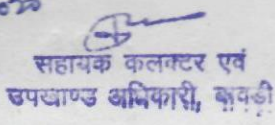 सहायक कलक्टर एवं
उपखण्ड अधिकारी,